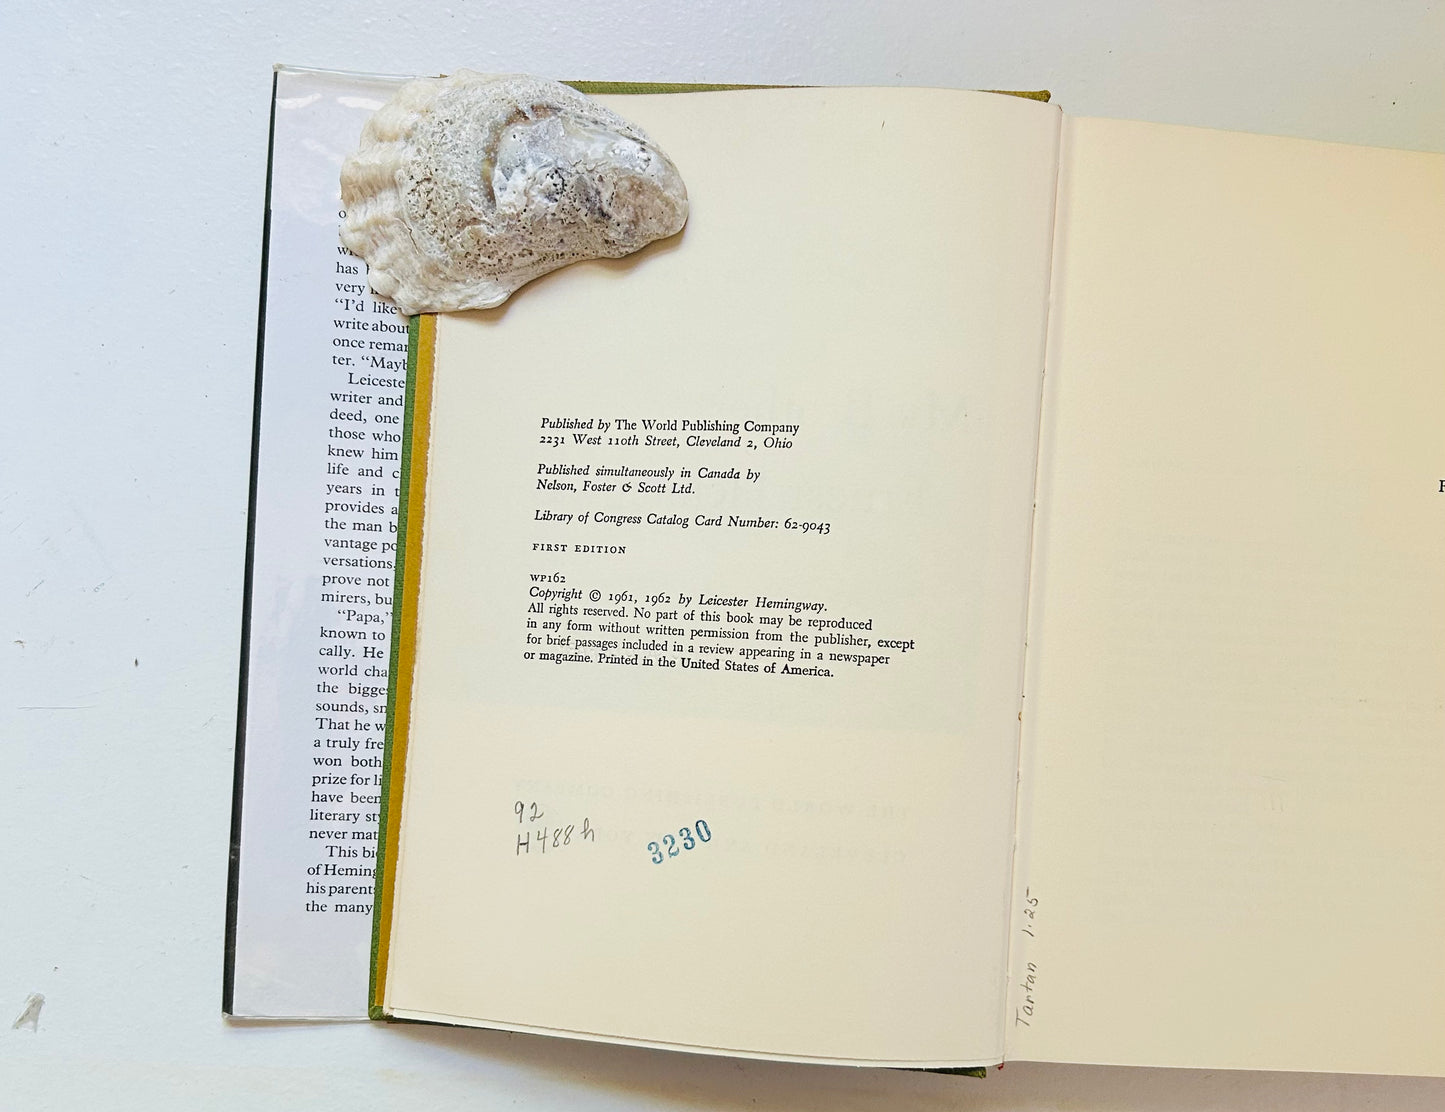 has
very
"I'd like
write about
once remar
ter. "Mayb
Leiceste
writer and
deed, one
those who
knew him
life and c
years in t
provides a
the man b
vantage po
versations,
prove not
mirers, bu
"Papa,"
known to
cally. He
world cha
the bigges
sounds, sn
That he w
a truly fre
won both
prize for li
have been
literary st
never mat
This bi
of Heming
his parents
the many
Published by The World Publishing Company
2231 West 110th Street, Cleveland 2, Ohio
Published simultaneously in Canada by
Nelson, Foster & Scott Ltd.
Library of Congress Catalog Card Number: 62-9043
FIRST EDITION
WP162
Copyright © 1961, 1962 by Leicester Hemingway.
All rights reserved. No part of this book may be reproduced
in any form without written permission from the publisher, except
for brief passages included in a review appearing in a newspaper
or magazine. Printed in the United States of America.
92
H488h
3230
Tartan 1.25